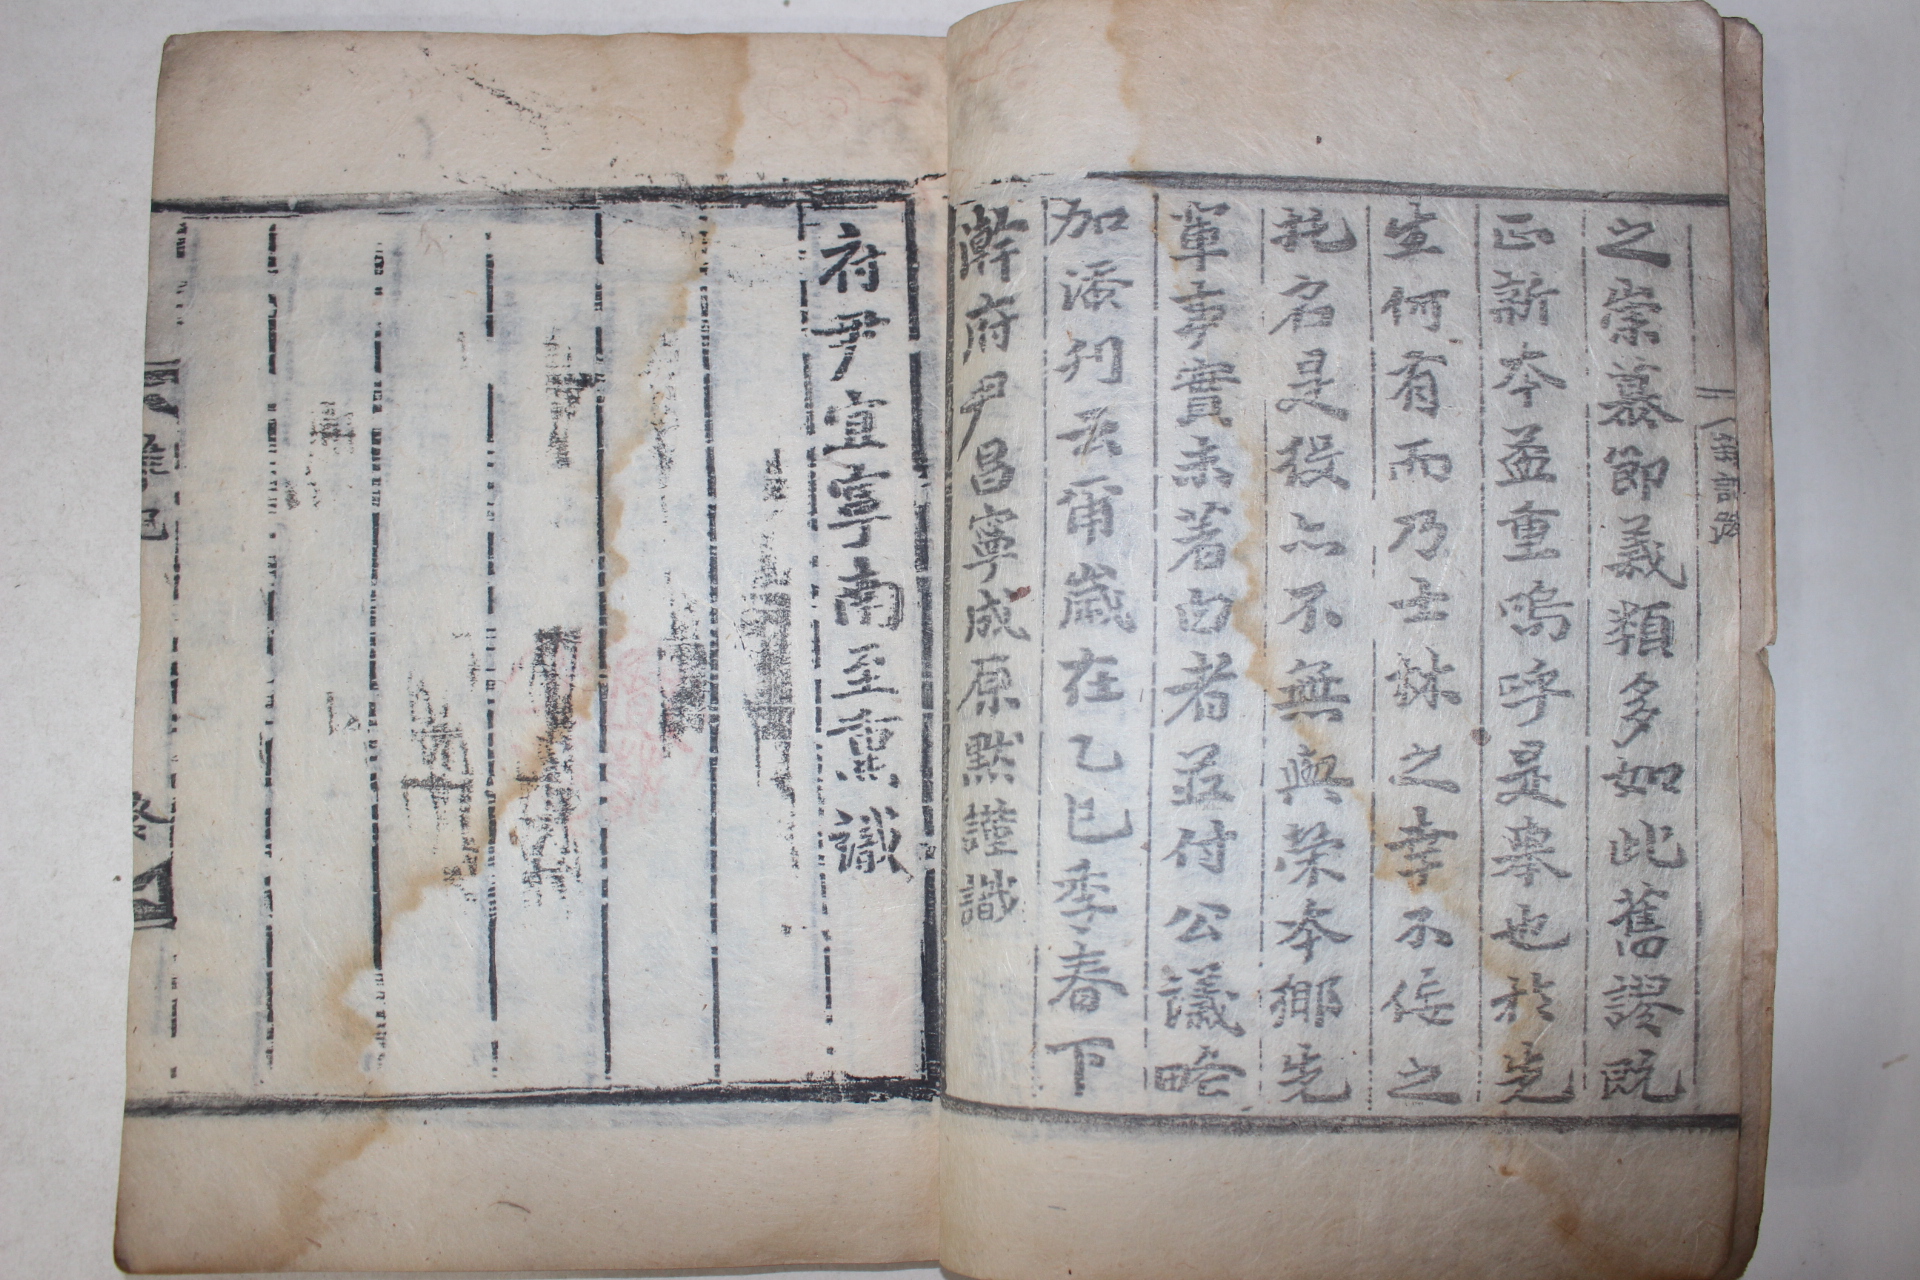 之崇慕節義類多如此舊謬既
正新本益重嗚呼是擧也於先
生何有而乃士林之幸不佞之
托名是役亦不無與榮本鄕先
軰事實未著白者並付公議略
加添刊云爾歲在乙巳季春下
澣府尹昌寧成原黙謹識
府尹宜寧南至熏識